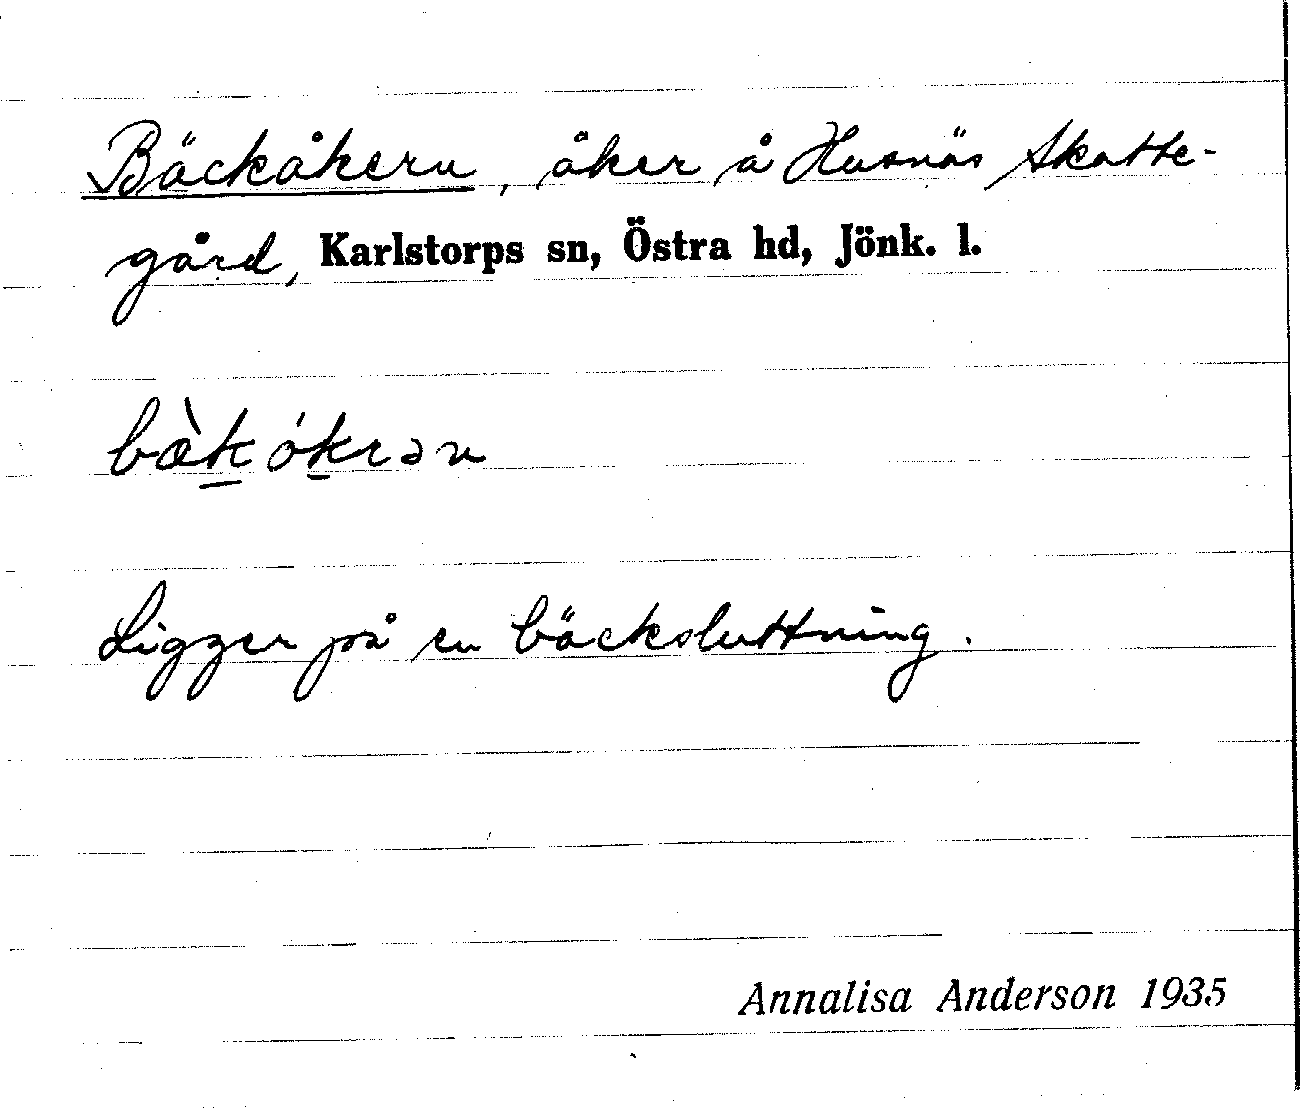 Bäckåkern, åker å Husnäs Skatte-
gård, Karlstorps sn, Östra hd, Jönk. l.
bæ̀k ókrən
Ligger på en bäcksluttning.
Annalisa Anderson 1935